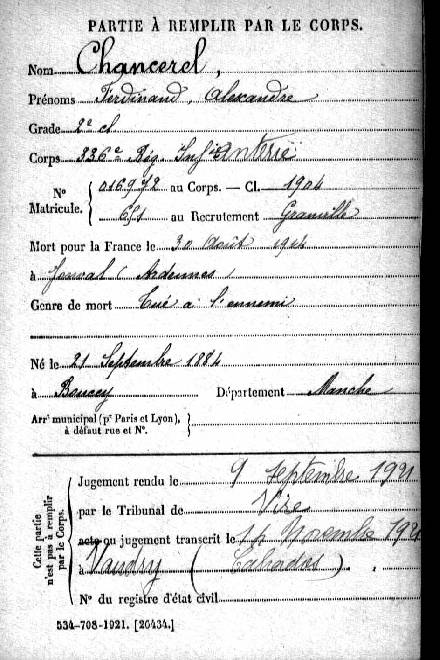 PARTIE À REMPLIR PAR LE CORPS.
Nom Chancerel,
Prénoms Ferdinand, Alexandre
Grade 2e cl
Corps 336e Rég. Infie anterie
No Matricule. 016972 au Corps. — Cl. 1904
651 au Recrutement Granville
Mort pour la France le 30 Août 1914
à (Ardennes)
Genre de mort Tué à l'ennemi
Né le 21 Septembre 1884
à Boucey Département Manche
Arrt municipal (pr Paris et Lyon), à défaut rue et No.
Cette partie n'est pas à remplir par le Corps.
Jugement rendu le 9 septembre 1921
par le Tribunal de Vire
acte ou jugement transcrit le Novembre 1921
à Vaudry (Calvados)
No du registre d'état civil
534-708-1921. [26434.]